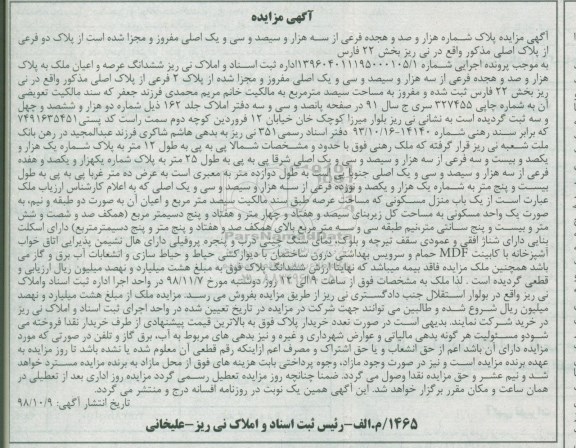 آگهی مزایده
آگهی مزایده پلاک شماره هزار و صد و هجده فرعی از سه هزار و سیصد و سی و یک اصلی مفروز و مجزا شده است از پلاک دو فرعی
از پلاک اصلی مذکور واقع در نی ریز بخش ۲۲ فارس
به موجب پرونده اجرایی شماره ۱۳۹۶۰۴۰۱۱۱۹۵۰۰۰۱۰۵/۱اداره ثبت اسناد و املاک نی ریز ششدانگ عرصه و اعیان ملک به پلاک
هزار و صد و هجده فرعی از سه هزار و سیصد و سی و یک اصلی مفروز و مجزا شده از پلاک ۲ فرعی از پلاک اصلی مذکور واقع در نی
ریز بخش ۲۲ فارس ثبت شده و مفروز به مساحت صدمترمربع به مالکیت خانم مریم محمدی فرزند جعفر که سند مالکیت تعویضی
آن به شماره چاپی ۳۲۷۴۵۵ سری ج سال ۹۱ در صفحه پانصد و سی و سه دفتر املاک جلد ۱۶۲ ذیل شماره دو هزار و ششصد و چهل
و سه ثبت گردیده است به نشانی نی ریز بلوار میرزا کوچک خان خیابان ۱۲ فروردین کوچه دوم سمت راست کد پستی ۷۴۹۱۶۳۵۴۵۱
که برابر سند رهنی شماره ۱۴۱۴۰-۹۳/۱۰/۱۶ دفتر اسناد رسمی۳۵۱ نی ریز به بدهی هاشم شاکری فرزند عبدالمجید در رهن بانک
ملت شعبه نی ریز قرار گرفته که ملک رهنی فوق با حدود و مشخصات شمالا پی به پی به طول ۱۲ متر به پلاک شماره یک هزار و
یکصد و بیست و سه فرعی از سه هزار و سیصد و سی و یک اصلی شرقا پی به پی به طول ۲۵ متر به پلاک شماره یکهزار و یکصد و هفده
فرعی از سه هزار و سیصد و سی و یک اصلی جنوبا به طول دوازده متر به معبری است به عرض ده متر غربا پی به پی به طول
بیست و پنج متر به شماره یک هزار و یکصد و نوزده فرعی از سه هزار و سیصد و سی و یک اصلی که به اعلام کارشناس ارزیاب ملک
عبارت است از یک باب منزل مسکونی که مساحت عرصه طبق سند مالکیت سیصد متر مربع و اعیان آن به صورت دو طبقه و نیم، به
صورت یک واحد مسکونی به مساحت کل زیربنای سیصد و هفتاد و چهار متر و هفتاد و پنج دسیمتر مربع (همکف صد و شصت و شش
متر و بیست و پنج سانتی مترنیم طبقه سی و سه متر مربع بالای همکف صد و هفتاد و پنج متر و پنج دسیمترمتربع) دارای اسکلت
بنایی دارای شناژ افقی و عمودی سقف تیرچه و بلوک، نمای سنگ چینی درب و پنجره پروفیلی دارای هال نشیمن پذیرایی اتاق خواب
آشپزخانه با کابینت MDF حمام و سرویس بهداشتی درون ساختمان با دیوارکشی حیاط و حیاط سازی و انشعابات آب برق و گاز می
باشد همچنین ملک مزایده فاقد بیمه میباشد که نهایتا ارزش ششدانگ پلاک فوق به مبلغ هشت میلیارد و نهصد میلیون ریال ارزیابی و
قطعی گردیده است . لذا ملک به مشخصات فوق از ساعت ۹ الی ۱۲ روز دوشنبه مورخ ۹۸/۱۱/۷ در واحد اجرا اداره ثبت اسناد واملاک
نی ریز واقع در بولوار استقلال جنب دادگستری نی ریز از طریق مزایده بفروش می رسد. مزایده ملک از مبلغ هشت میلیارد و نهصد
میلیون ریال شروع شده و طالبین می توانند جهت شرکت در مزایده در تاریخ تعیین شده در واحد اجرای ثبت اسناد و املاک نی ریز
در خرید شرکت نمایند. بدیهی است در صورت تعدد خریدار پلاک فوق به بالاترین قیمت پیشنهادی از طرف خریدار نقدا فروخته می
شودو مسئولیت هر گونه بدهی مالیاتی و عوارض شهرداری و غیره و نیز بدهی های مربوط به آب، برق گاز و تلفن در صورتی که مورد
مزایده دارای آن باشد اعم از حق انشعاب و یا حق اشتراک و مصرف اعم ازاینکه رقم قطعی آن معلوم شده یا نشده باشد تا روز مزایده به
عهده برنده مزایده است و نیز در صورت وجود مازاد، وجوه پرداختی بابت هزینه های فوق از محل مازاد به برنده مزایده مسترد خواهد
شد و نیم عشر و حق مزایده نقدا وصول می گردد. ضمنا چنانچه روز مزایده تعطیل رسمی گردد مزایده روز اداری بعد از تعطیلی در
همان ساعت و مکان مقرر برگزار خواهد شد. این آگهی همین یک نوبت در روزنامه افسانه درج و منتشر می گردد.
تاریخ انتشار آگهی: ۹۸/۱۰/۹
۱۴۶۵/م.الف-رئیس ثبت اسناد و املاک نی ریز-علیخانی